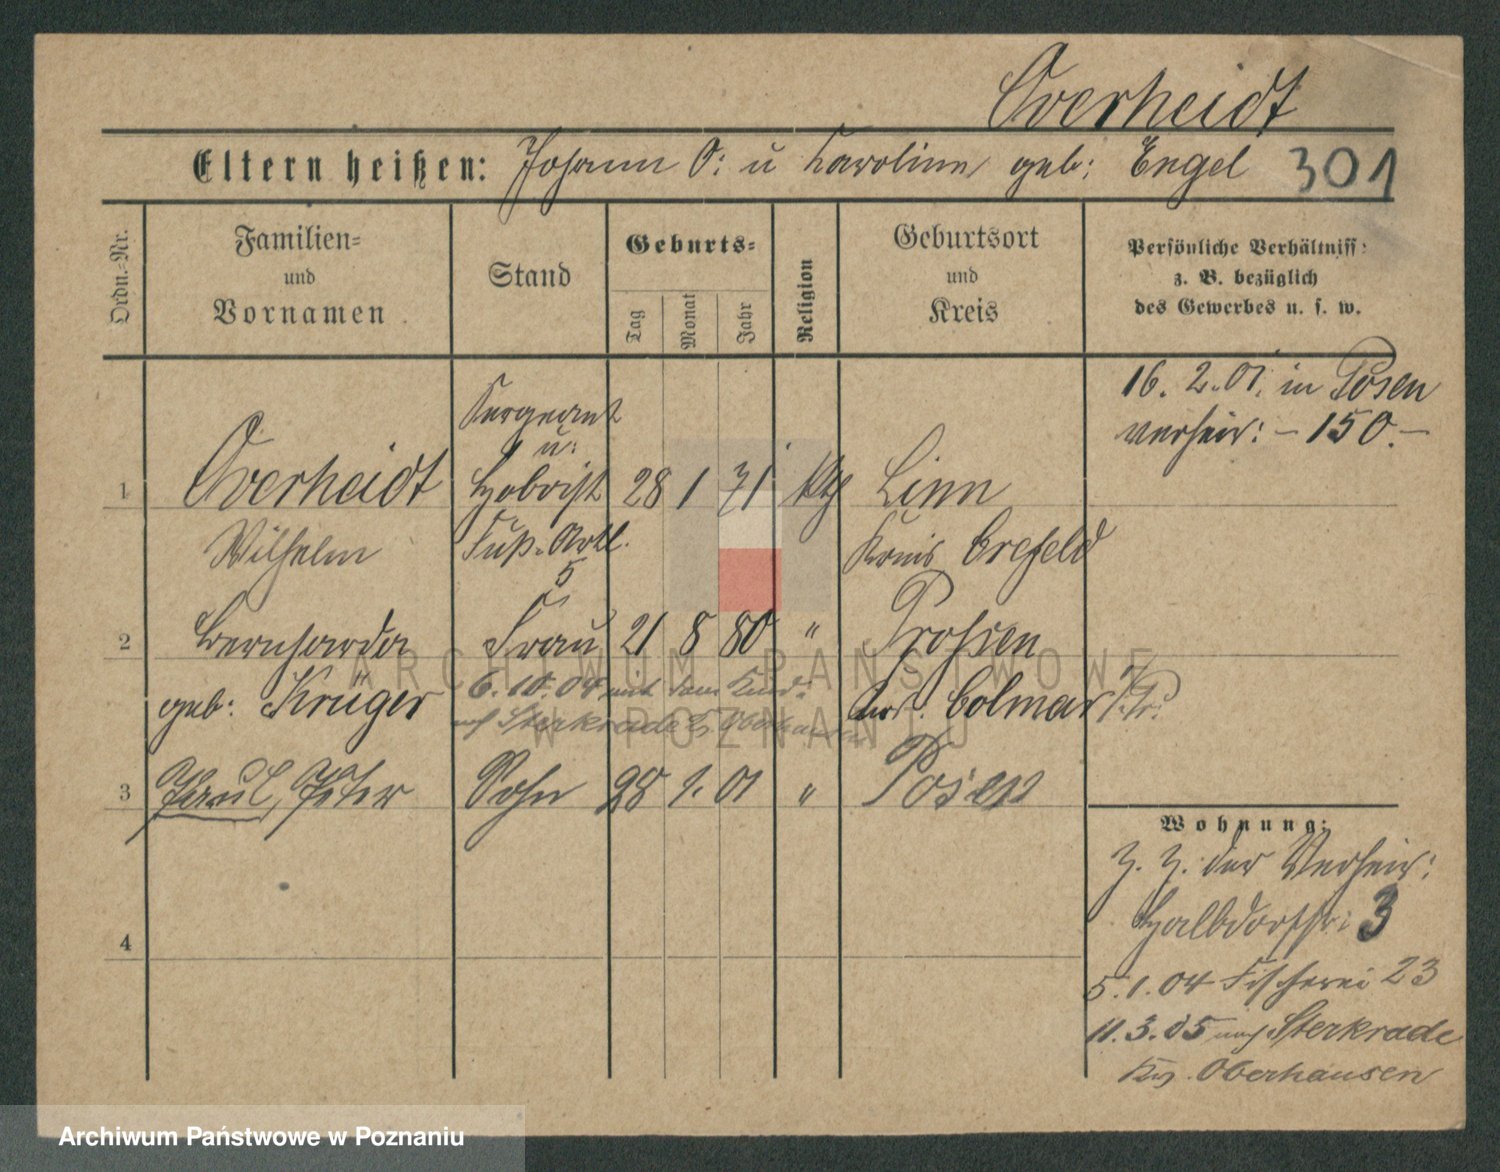 Overheidt
Eltern heißen: Johann O: u Karoline geb: Engel 301
Ordn.-Nr.
Familien-
und
Vornamen
Stand
Geburts-
Tag
Monat
Jahr
Religion
Geburtsort
und
Kreis
Persönliche Verhältniss:
z. B. bezüglich
des Gewerbes u. s. w.
16. 2. 01. in Posen
verheir: – 150. –
Sergeant
u:
1 Overheidt Hoboist 28 1 71 kth Linn
Wilhelm Fuß-Artl. Kreis Crefeld
5
2 Bernharda Frau 21 8 80 " Prossen
geb: Krüger 6. 10. 04 mit dem Kind: Colmar i/Pr:
nach Sterkrade Oberhausen
3 Paul, Peter Sohn 28 1. 01 " Posen
Wohnung:
z. Z. der Verheir:
Halbdorfstr: 3
4
5. 1. 04 Fischerei 23
11. 3. 05 nach Sterkrade
Krs. Oberhausen
ARCHIWUM PAŃSTWOWE
W POZNANIU
Archiwum Państwowe w Poznaniu